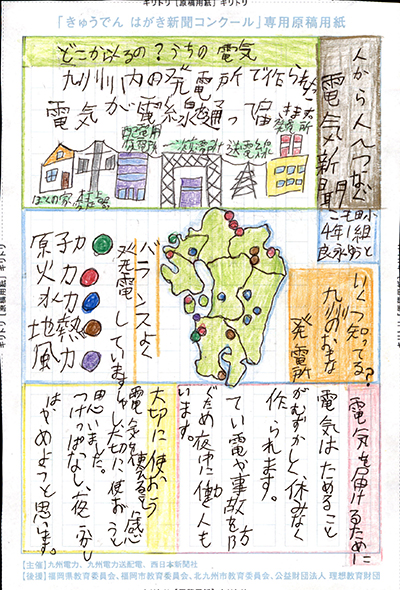 キリトリ【原稿用紙】キリトリ
「きゅうでん はがき新聞コンクール」専用原稿用紙
人から人へつなぐ
電気新聞
4年1組
どこから来るの?うちの電気
九州内の発電所で作られた
電気が電線を通って届きます。
ぼくの家
配電用変電所
一次変電所
送電線
発電所
いくつ知ってる?
九州のおもな
発電所
バランスよく
発電しています。
原子力
火力
水力
地熱
風力
電気を届けるために
電気はためること
がむずかしく、休みなく
作られます。
てい電や事故を防
ぐため夜中に働く人も
います。
大切に使おう
電気を使えることに感
しゃし大切に使おうと
思いました。
つけっぱなし、夜ふかし
はやめようと思います。
【主催】九州電力、九州電力送配電、西日本新聞社
【後援】福岡県教育委員会、福岡市教育委員会、北九州市教育委員会、公益財団法人 理想教育財団